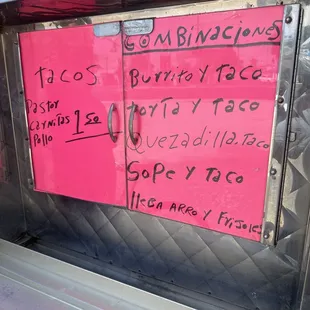 TACOS
Pastor
CarNiTas 150
Pollo
COMBiNACiones
BurriTo Y TaCo
TorTa Y TaCo
QuezaDilla.TaCo
SoPe Y TaCo
llEGA ARRO Y FRiJoles